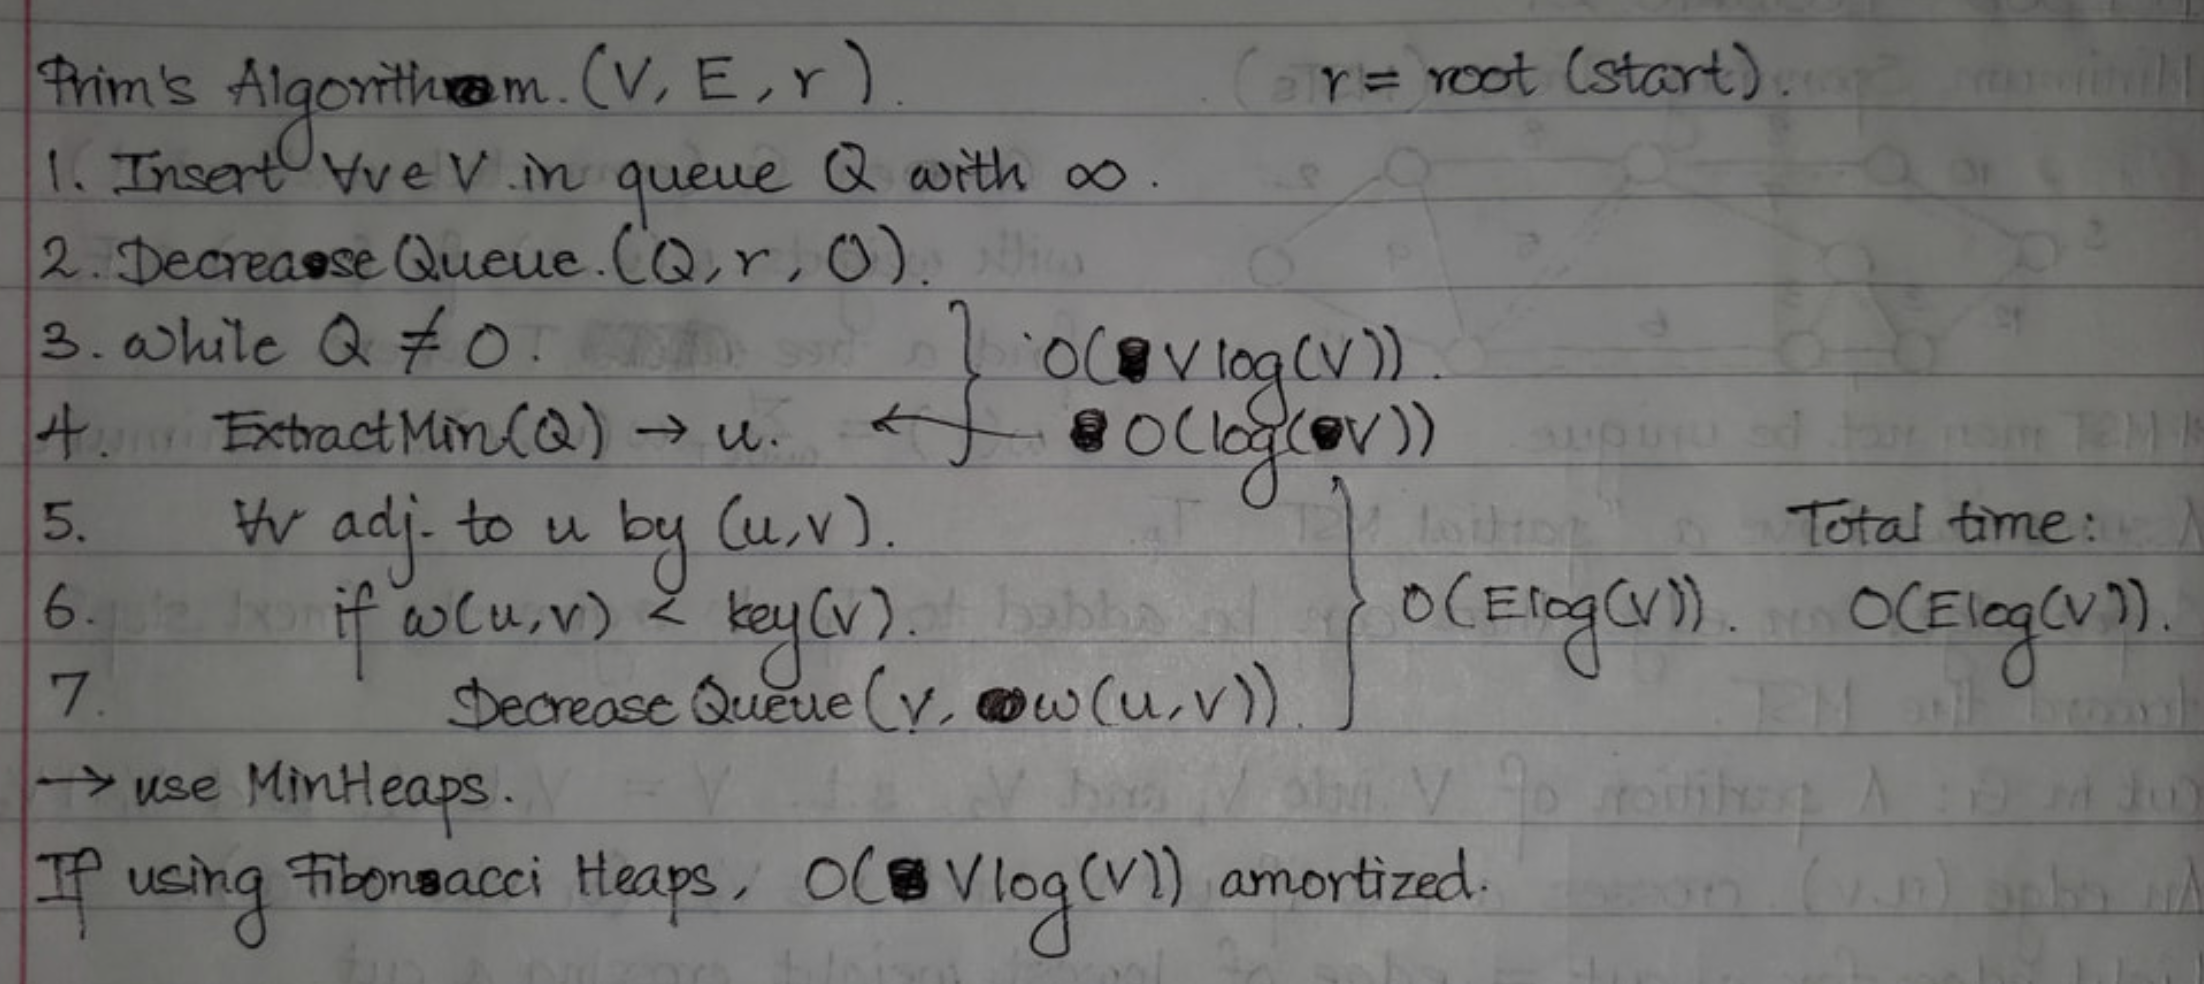 Prim's Algorithm. (V, E, r). r = root (start).
1. Insert ∀v∈V in queue Q with ∞.
2. Decrease Queue. (Q, r, 0).
3. while Q ≠ 0. O(V log(V)).
4. ExtractMin(Q) → u. ← O(log(V))
5. ∀v adj. to u by (u,v). Total time:
6. if w(u,v) < key(v). O(Elog(V)). O(Elog(V)).
7. Decrease Queue (v, w(u,v)).
→ use MinHeaps.
If using Fibonacci Heaps, O(V log(V)) amortized.